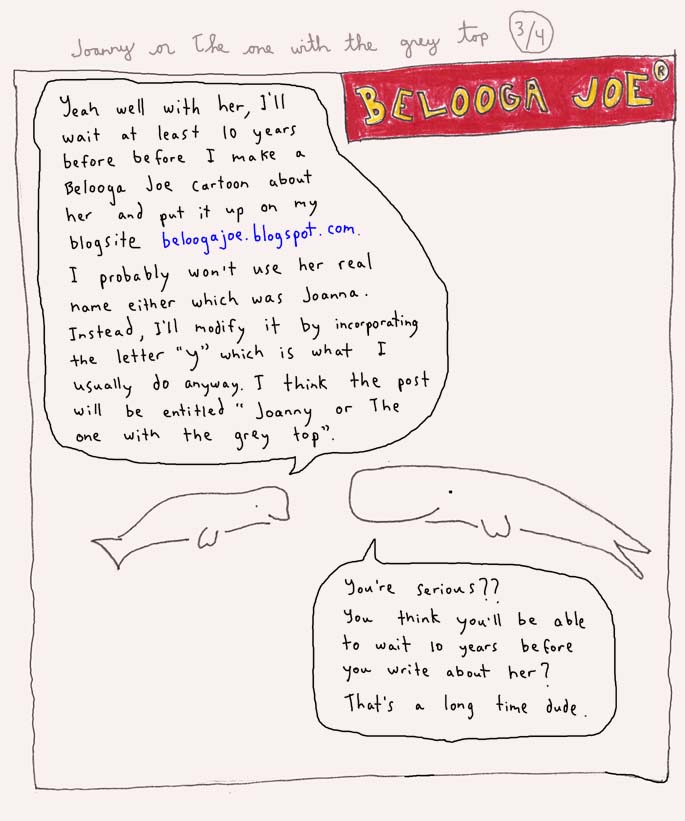 Joanny or The one with the grey top 3/4
BELOOGA JOE ®
Yeah well with her, I'll
wait at least 10 years
before before I make a
Belooga Joe cartoon about
her and put it up on my
blogsite beloogajoe.blogspot.com.
I probably won't use her real
name either which was Joanna.
Instead, I'll modify it by incorporating
the letter "y" which is what I
usually do anyway. I think the post
will be entitled "Joanny or The
one with the grey top".
You're serious??
You think you'll be able
to wait 10 years before
you write about her?
That's a long time dude.